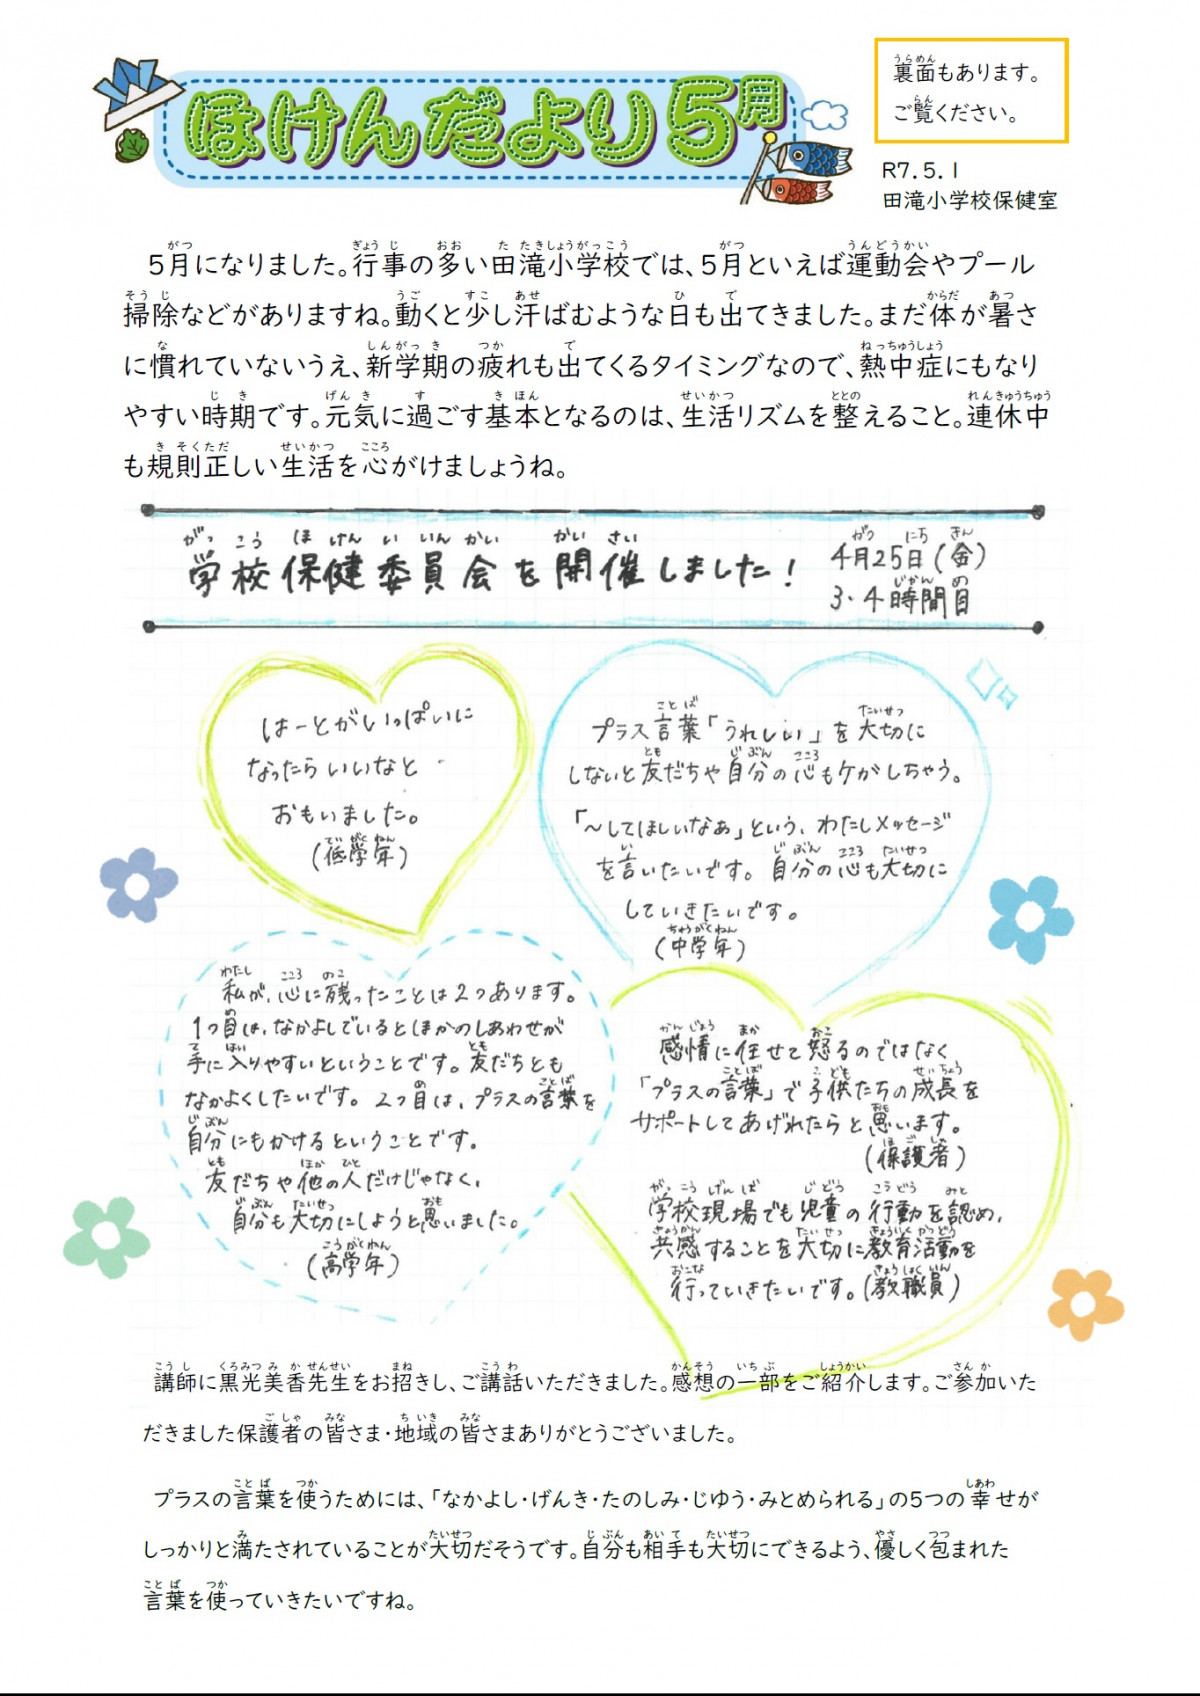 ほけんだより5月
裏面もあります。
ご覧ください。
R7.5.1
田滝小学校保健室
5月になりました。行事の多い田滝小学校では、5月といえば運動会やプール
掃除などがありますね。動くと少し汗ばむような日も出てきました。まだ体が暑さ
に慣れていないうえ、新学期の疲れも出てくるタイミングなので、熱中症にもなり
やすい時期です。元気に過ごす基本となるのは、生活リズムを整えること。連休中
も規則正しい生活を心がけましょうね。
学校保健委員会を開催しました!
4月25日(金)
3・4時間目
はーとがいっぱいに
なったらいいなと
おもいました。
(低学年)
プラス言葉「うれしい」を大切に
しないと友だちや自分の心もケガしちゃう。
「～してほしいなぁ」という、わたしメッセージ
を言いたいです。自分の心も大切に
していきたいです。
(中学年)
私が、心に残ったことは2つあります。
1つ目は、なかよしでいるとほかのしあわせが
手に入りやすいということです。友だちとも
なかよくしたいです。2つ目は、プラスの言葉を
自分にもかけるということです。
友だちや他の人だけじゃなく、
自分も大切にしようと思いました。
(高学年)
感情に任せて怒るのではなく
「プラスの言葉」で子供たちの成長を
サポートしてあげれたらと思います。
(保護者)
学校現場でも児童の行動を認め、
共感することを大切に教育活動を
行っていきたいです。(教職員)
講師に黒光美香先生をお招きし、ご講話いただきました。感想の一部をご紹介します。ご参加いた
だきました保護者の皆さま・地域の皆さまありがとうございました。
プラスの言葉を使うためには、「なかよし・げんき・たのしみ・じゆう・みとめられる」の5つの幸せが
しっかりと満たされていることが大切だそうです。自分も相手も大切にできるよう、優しく包まれた
言葉を使っていきたいですね。